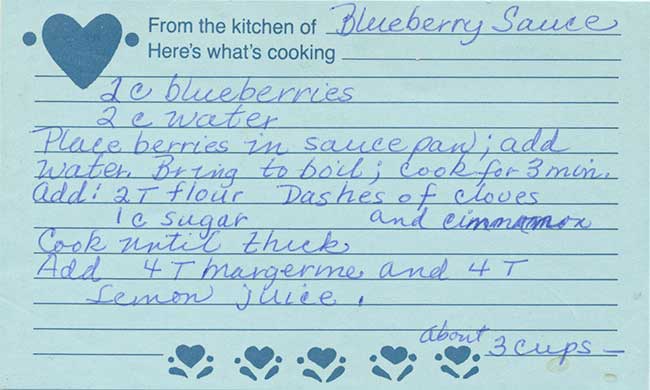 From the kitchen of Blueberry Sauce
Here's what's cooking
2 c blueberries
2 c water
Place berries in sauce pan; add
water. Bring to boil; cook for 3 min.
Add: 2 T flour Dashes of cloves
1 c sugar and cinnamon
Cook until thick
Add 4 T margerine and 4 T
Lemon juice.
About 3 cups —